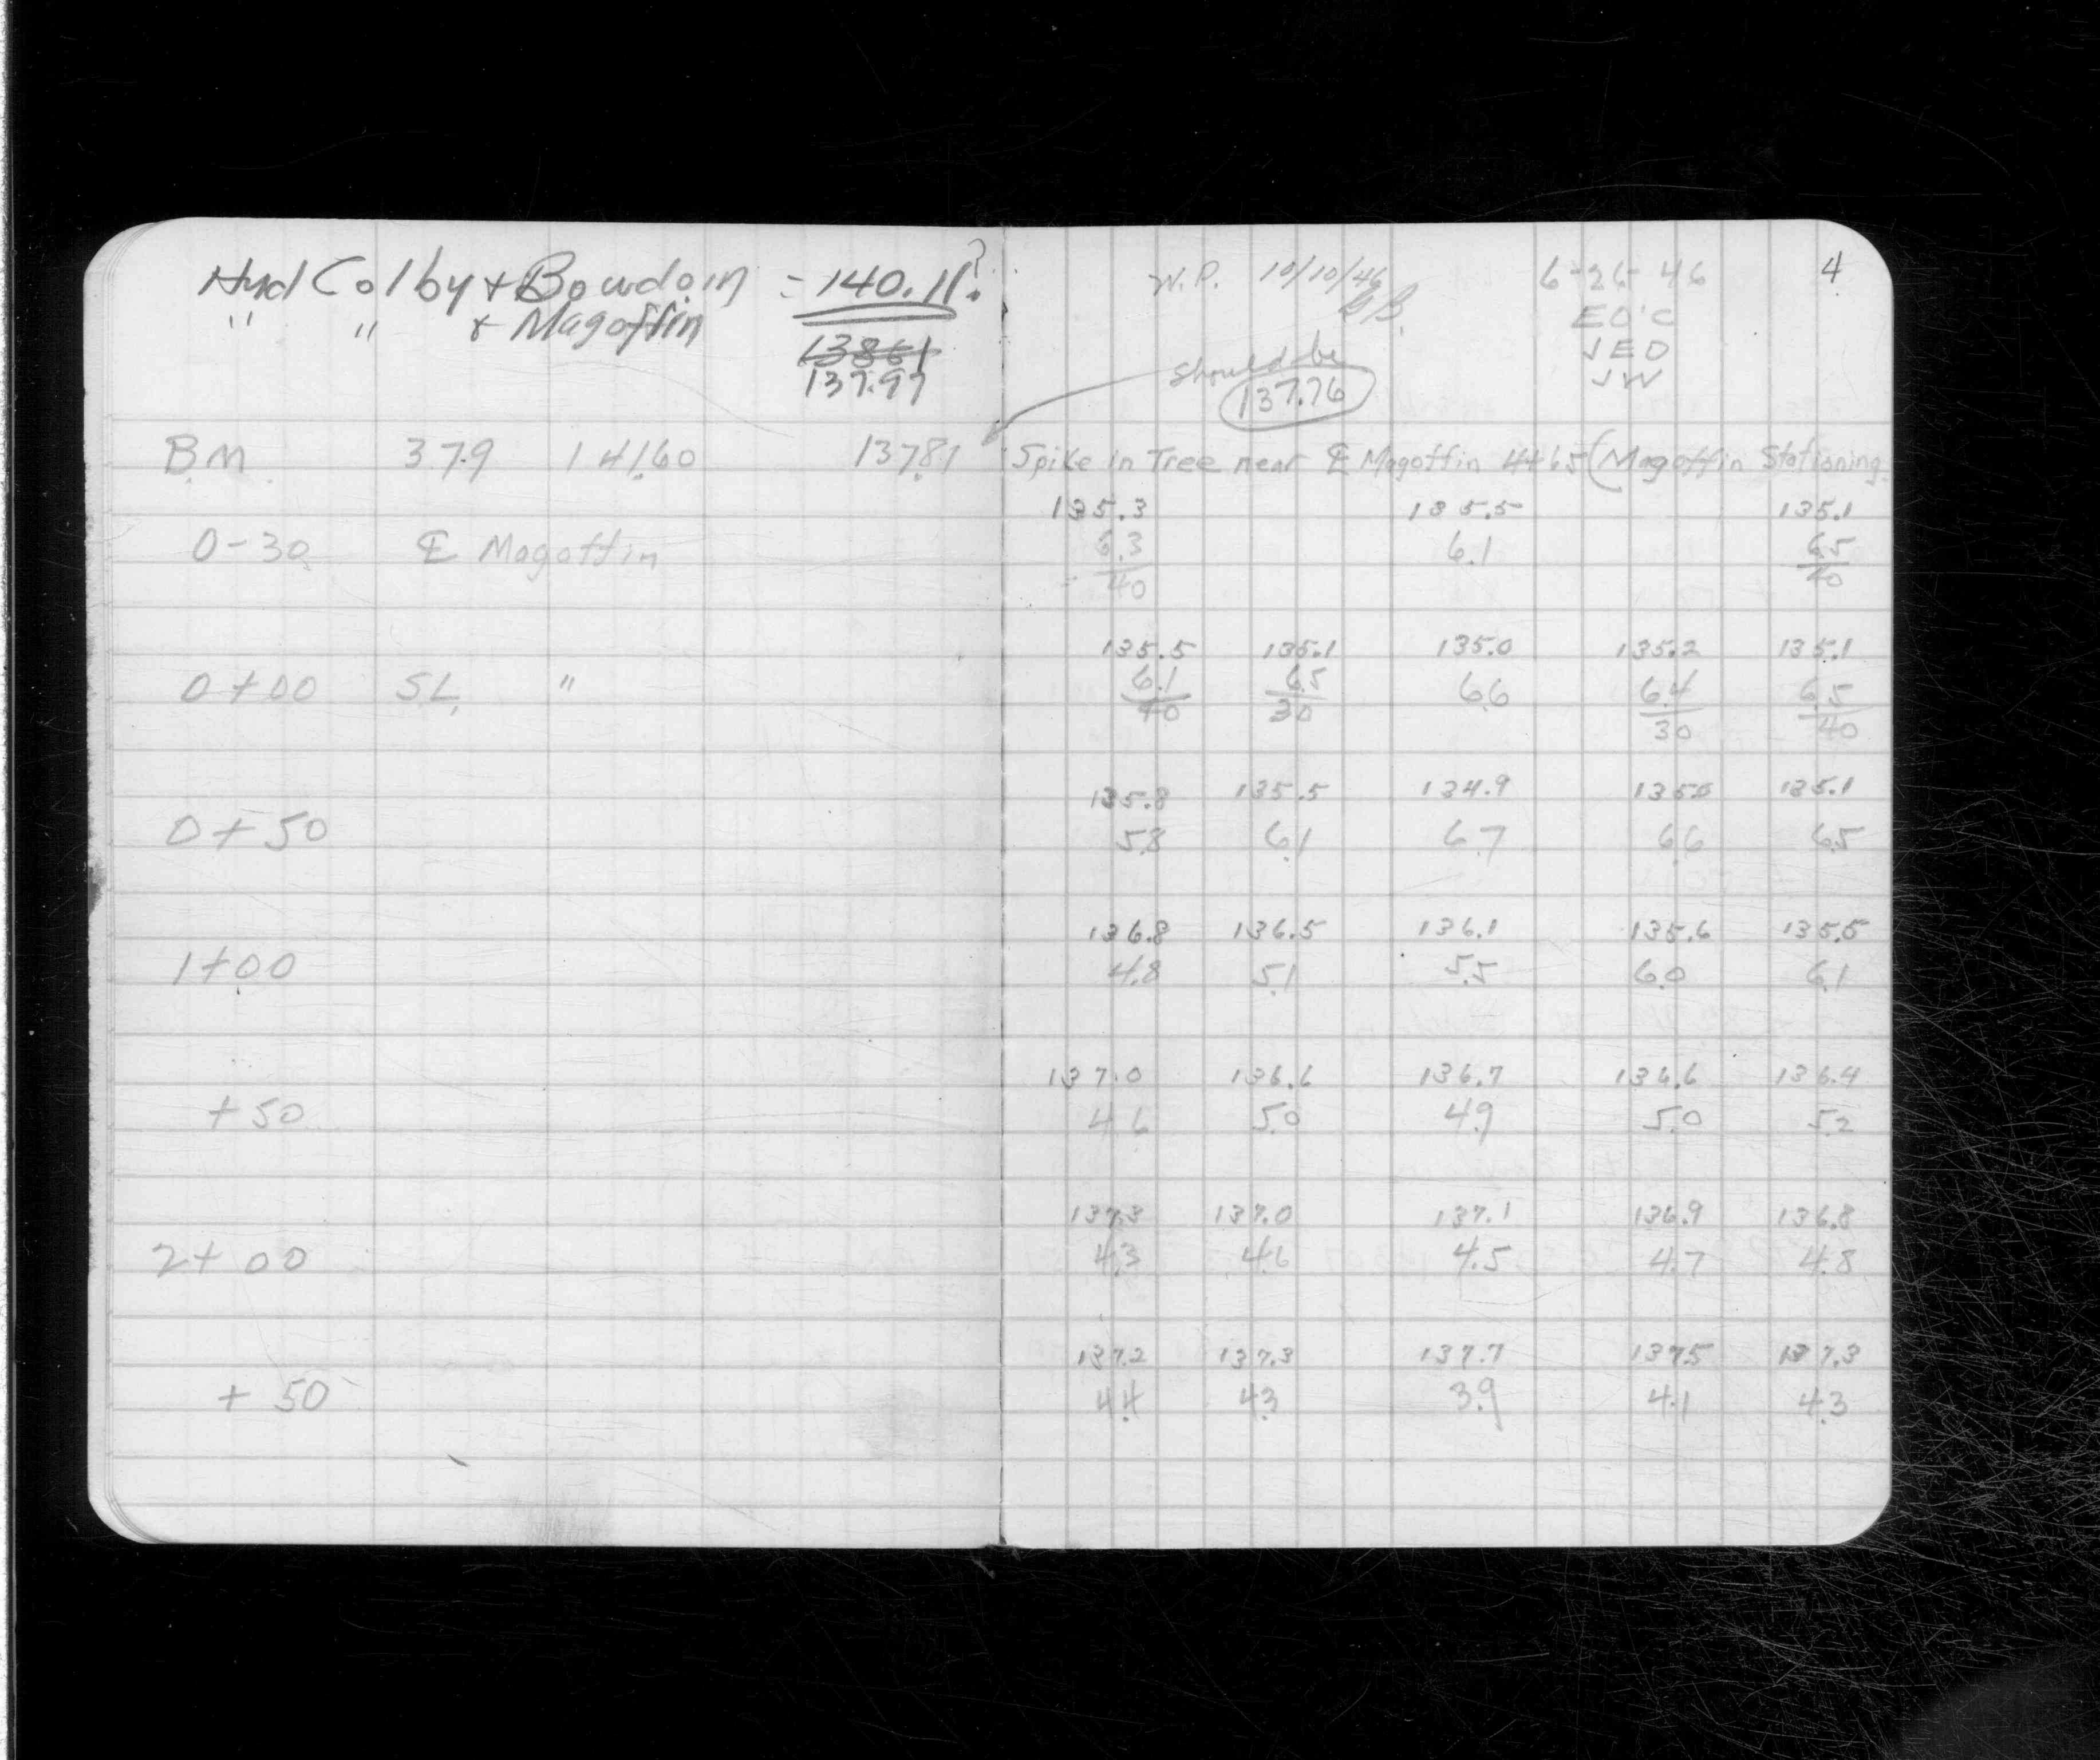 Hyd Colby + Bowdoin = 140.11?
" " + Magoffin
138.61
137.97
W.P. 10/10/46
6-26-46 4
EO'C
JEO
JW
should be
137.76
B.M. 3.79 141.60 137.81 Spike in Tree near ℄ Magoffin 4+65 (Magoffin Stationing
135.3 135.5 135.1
0-30 ℄ Magoffin 6.3 6.1 6.5
40 40
135.5 135.1 135.0 135.2 135.1
0+00 S.L. " 6.1 6.5 6.6 6.4 6.5
40 30 30 40
135.8 135.5 134.9 135.0 135.1
0+50 5.8 6.1 6.7 6.6 6.5
136.8 136.5 136.1 135.6 135.5
1+00 4.8 5.1 5.5 6.0 6.1
137.0 136.6 136.7 136.6 136.4
+50 4.6 5.0 4.9 5.0 5.2
137.3 137.0 137.1 136.9 136.8
2+00 4.3 4.6 4.5 4.7 4.8
137.2 137.3 137.7 137.5 137.3
+50 4.4 4.3 3.9 4.1 4.3